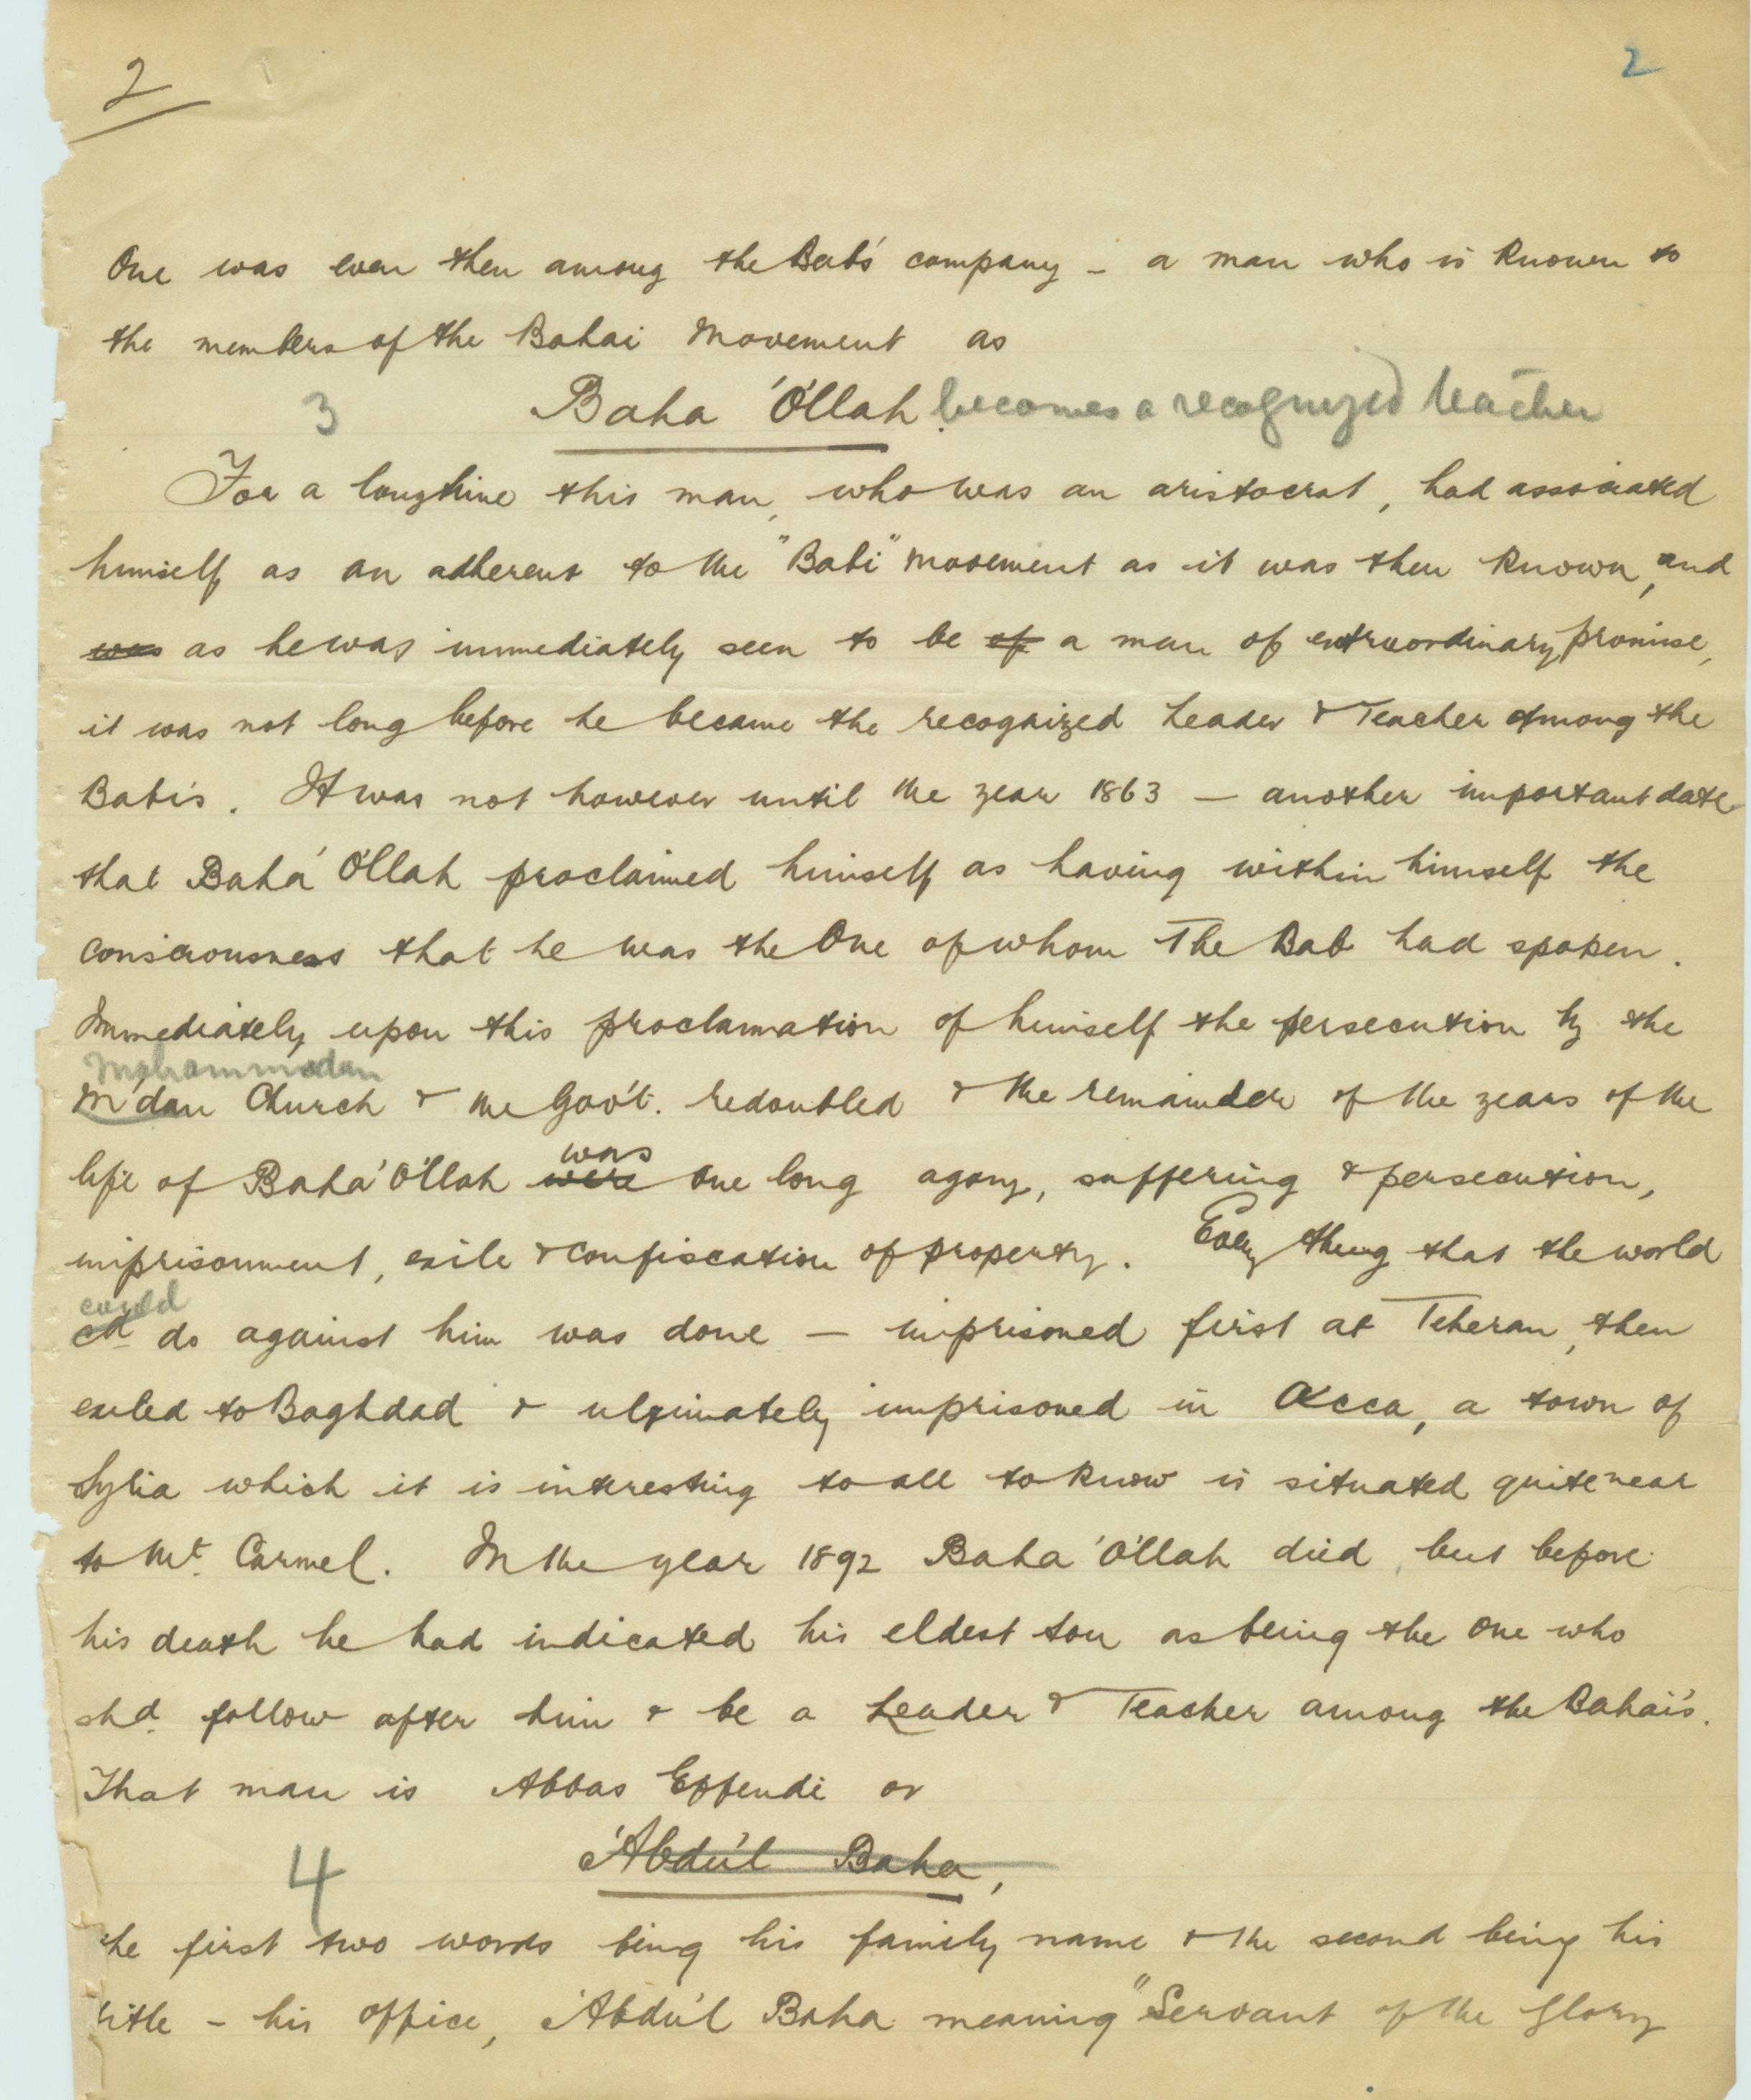 2 2
One was even then among the Bab's company – a man who is known to
the members of the Bahai Movement as
3 Baha 'O'llah. becomes a recognized teacher
For a long time this man, who was an aristocrat, had associated
himself as an adherent to the "Babi" movement as it was then known, and
was as he was immediately seen to be of a man of extraordinary promise,
it was not long before he became the recognized Leader & Teacher among the
Babis. It was not however until the year 1863 — another important date
that Baha' O'llah proclaimed himself as having within himself the
consciousness that he was the One of whom The Bab had spoken.
Immediately upon this proclamation of himself the persecution by the
Mohammadan
M'dan Church & the Gov't. redoubled & the remainder of the years of the
was
life of Baha' O'llah were one long agony, suffering & persecution,
imprisonment, exile & confiscation of property. Every thing that the world
could
cd do against him was done — imprisoned first at Teheran, then
exiled to Baghdad & ultimately imprisoned in Acca, a town of
Syria which it is interesting to all to know is situated quite near
to Mt. Carmel. In the year 1892 Baha 'O'llah died, but before
his death he had indicated his eldest son as being the One who
shd. follow after him & be a Leader & Teacher among the Bahai's.
That man is Abbas Effendi or
4 'Abdu'l Baha,
the first two words being his family name & the second being his
title – his office, 'Abdu'l Baha meaning "Servant of the Glory